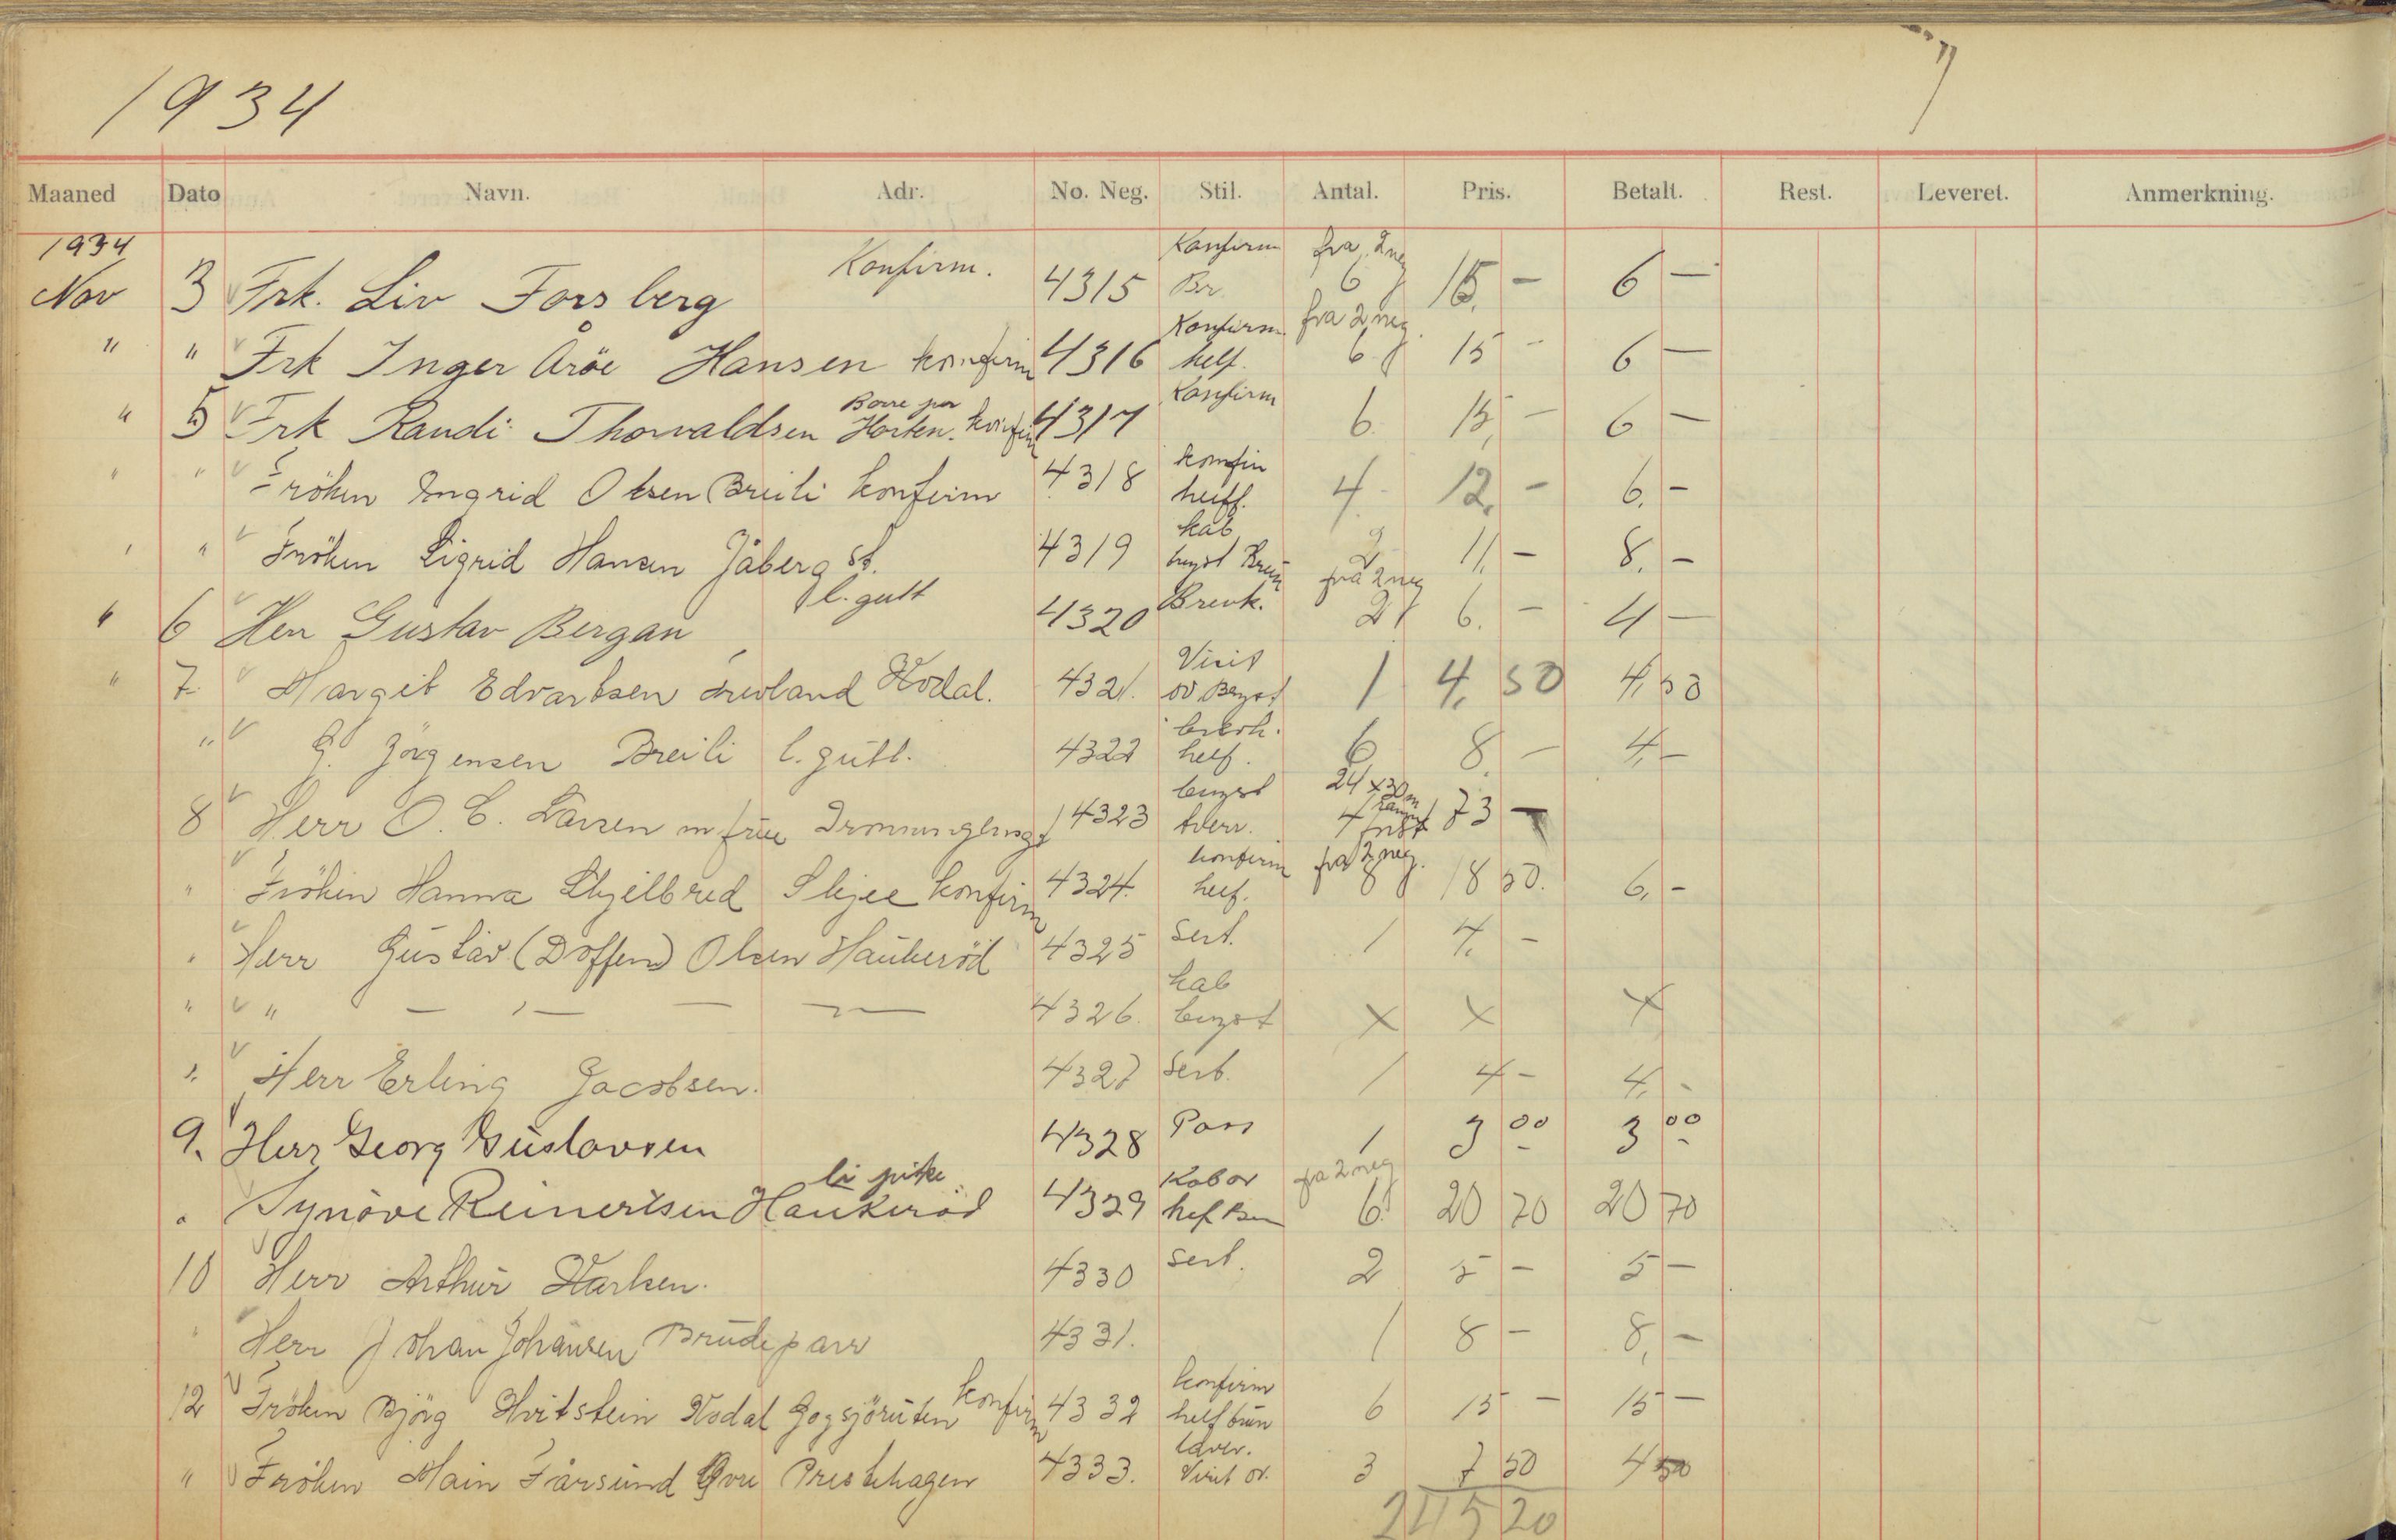 1934
7
Maaned Dato Navn. Adr. No. Neg. Stil. Antal. Pris. Betalt. Rest. Leveret. Anmerkning.
1934
Konfirm fra 2 neg
Nov 3 Frk. Liv Forsberg Konfirm. 4315 Br. 6 15. — 6 —
Konfirm. fra 2 neg.
" " Frk Inger Åröe Hansen konfirm 4316 helf. 6 15 - 6 —
Borre pr Konfirm
" 5 Frk Randi Thorvaldsen Horten. konfirm 4317 6 15, — 6 —
konfir
" " Fröken Ingrid Olsen Breili konfirm 4318 heiff. 4 12, - 6, -
kab
" " Fröken Sigrid Hansen Jåberg St. 4319 2 11, - 8, -
l. gutt fra 2 neg
" 6 Herr Gustav Bergan 4320 Brevk. 2 6. — 4 —
Visit
" 7 Margit Edvartsen Kodal. 4321. 1 4, 50 4, 50
brevk.
" G. Jörgensen Breili l. gutt. 4322 helf. 6 8, — 4, —
bryst 24 x 30 m
8 Herr O. C. Larsen m frue 4323 tverr. 4 73 —
konfirm fra 2 neg.
" Fröken Hanna Skjelbred Skjee konfirm 4324. helf. 8 18 50. 6, -
" Herr Gustav (Doffen) Olsen Haukeröd 4325 Sert. 1 4, -
kab
" " — — — — 4326. bryst x x x
" Herr Erling Jacobsen. 4327 Sert. 1 4 - 4, -
9. Herr Georg Gustavsen 4328 Pass 1 3 00 3 00
li pike Kabor fra 2 neg
" Synöve Reinertsen Haukeröd 4329 hef 6 20 70 20 70
10 Herr Arthur Karlsen. 4330 Sert. 2 5 - 5 —
" Herr Johan Johansen Brudeparr 4331. 1 8 - 8, -
konfirm
12 Fröken Björg Hvitstein Kodal Gogsjöruten konfirm 4332 helf brun 6 15 - 15 -
" Fröken Main Fårsund Övre Prestehagen 4333. Visit ov. 3 7 50 4 50
245 20